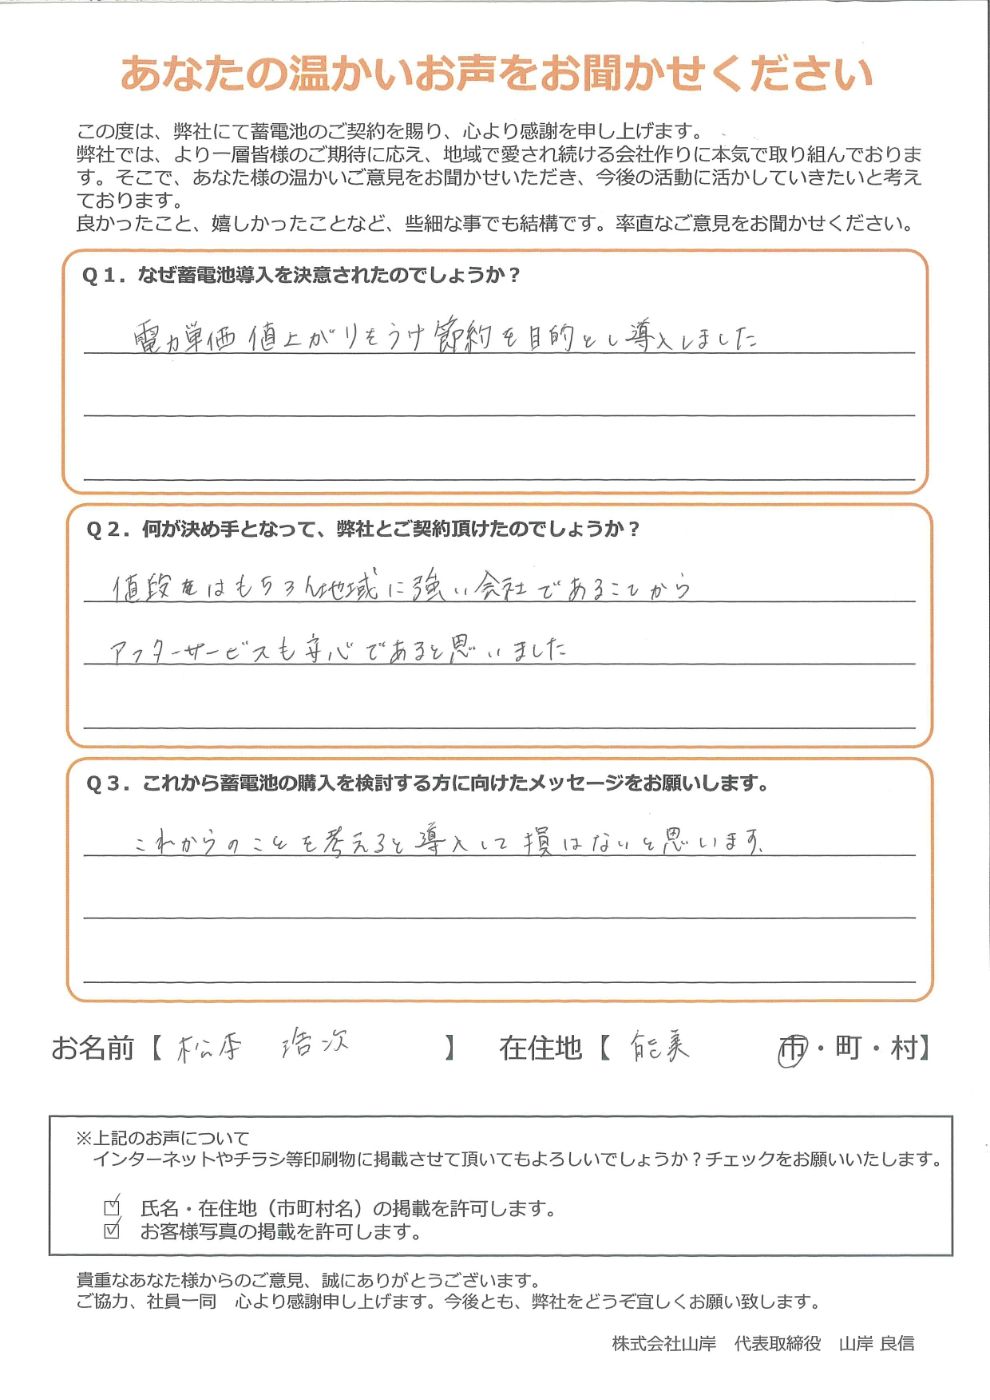 あなたの温かいお声をお聞かせください
この度は、弊社にて蓄電池のご契約を賜り、心より感謝を申し上げます。
弊社では、より一層皆様のご期待に応え、地域で愛され続ける会社作りに本気で取り組んでおりま
す。そこで、あなた様の温かいご意見をお聞かせいただき、今後の活動に活かしていきたいと考え
ております。
良かったこと、嬉しかったことなど、些細な事でも結構です。率直なご意見をお聞かせください。
Q1．なぜ蓄電池導入を決意されたのでしょうか？
電力単価値上がりをうけ節約を目的とし導入しました
Q2．何が決め手となって、弊社とご契約頂けたのでしょうか？
値段をはもちろん地域に強い会社であることから
アフターサービスも安心であると思いました
Q3．これから蓄電池の購入を検討する方に向けたメッセージをお願いします。
これからのことを考えると導入して損はないと思います。
お名前【 松本 浩次 】 在住地【 能美 市・町・村】
※上記のお声について
インターネットやチラシ等印刷物に掲載させて頂いてもよろしいでしょうか？チェックをお願いいたします。
☑ 氏名・在住地（市町村名）の掲載を許可します。
☑ お客様写真の掲載を許可します。
貴重なあなた様からのご意見、誠にありがとうございます。
ご協力、社員一同　心より感謝申し上げます。今後とも、弊社をどうぞ宜しくお願い致します。
株式会社山岸　代表取締役　山岸 良信